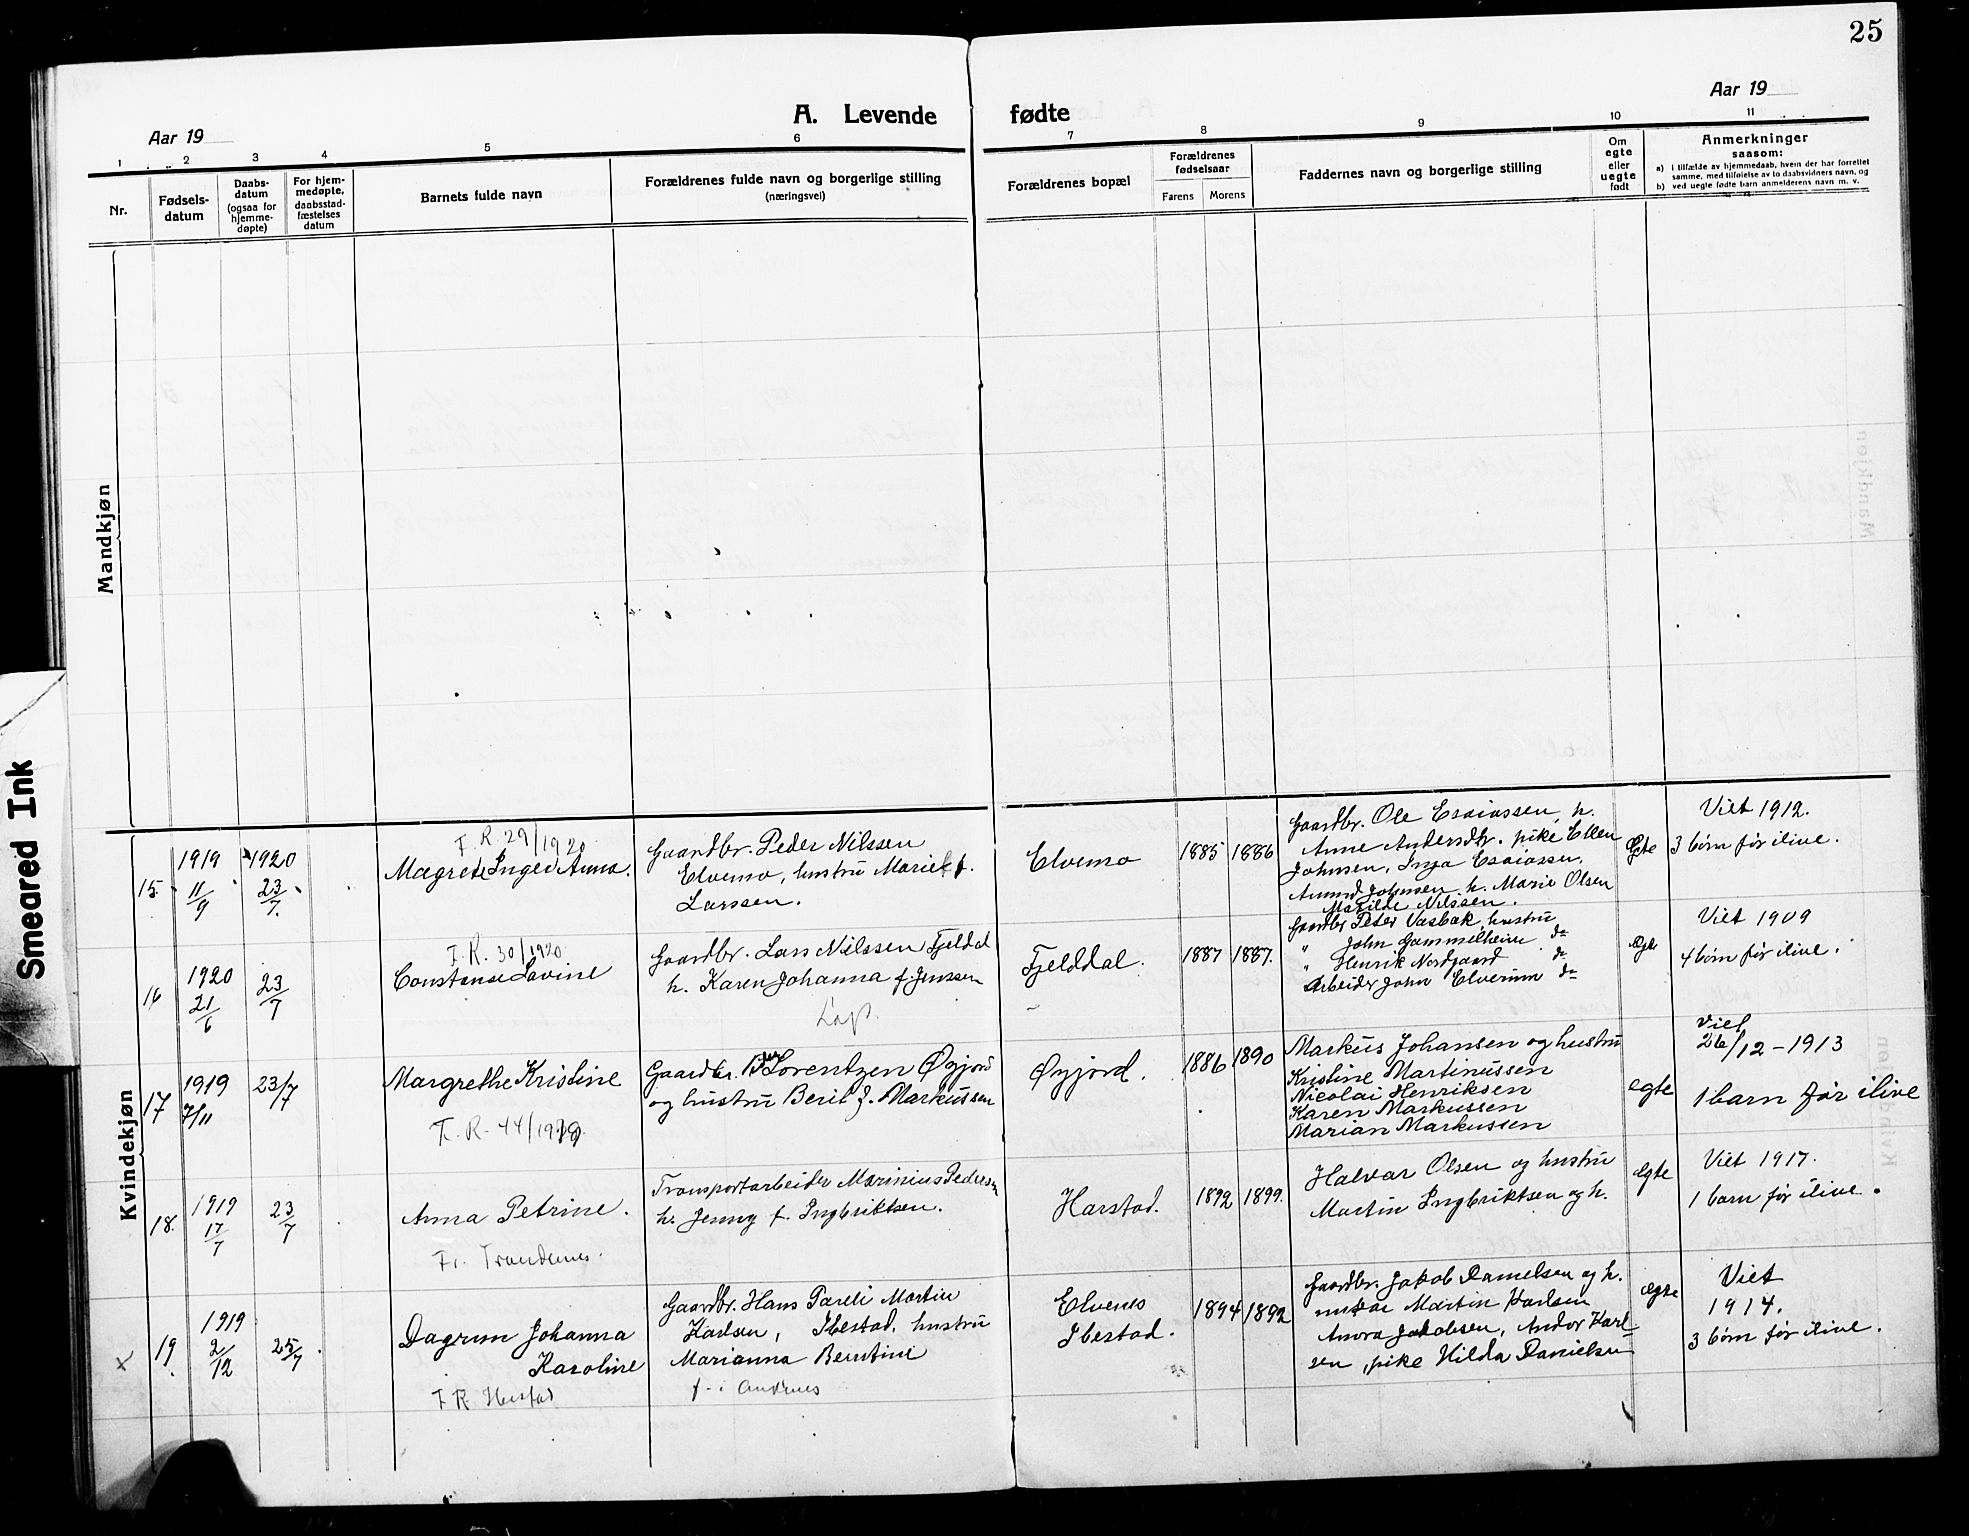 25
Aar 19
Aar 19
A. Levende fødte
1 2 3 4 5 6 7 8 9 10 11
Nr.
Fødsels-
datum
Daabs-
datum
(ogsaa for
hjemme-
døpte)
For hjem-
medøpte,
daabsstad-
fæstelses
datum
Barnets fulde navn
Forældrenes fulde navn og borgerlige stilling
(næringsvei)
Forældrenes bopæl
Forældrenes
fødselsaar
Farens Morens
Faddernes navn og borgerlige stilling
Om
egte
eller
uegte
født
Anmerkninger
saasom:
a) i tilfælde av hjemmedaab, hvem der har forrettet
samme, med tilføielse av to daabsvidners navn, og
b) ved uegte fødte barn anmelderens navn m. v.
Mandkjøn
Kvindekjøn
Smeared Ink
15.
1919
11/9
1920
23/7.
F. R. 29/1920
Magrete Inged Anna.
Gaardbr. Peder Nilssen
Elvemo, hustru Marie f.
Larssen.
Elvemo
1885 1886
Gaardbr. Ole Esaiassen, h.
Anne Andersdtr. pike Ellen
Johnsen, Inga Esaiassen,
Amund Johnsen h. Marie Olsen
Matilde Nilssen.
Egte
Viet 1912.
3 børn før ilive.
16
1920
21/6
23/7
F. R. 30/1920
Constanse Lovine
Gaardbr. Lars Nilssen Fjeldal
h. Karen Johanna f. Jenssen
Lap.
Fjelddal.
1887 1887.
Gaardbr Peter Vasbak, hustru
" John Gammelheim do
" Henrik Nordgaard do
Arbeider John Elverum do
Egte
Viet 1909
4 børn før ilive.
17
1919
7/11
23/7
Margrethe Kristine
F. R. 44/1919
Gaardbr. Lorentzen Øyjord
og hustru Berit f. Markussen
Øyjord.
1886 1890
Markus Johansen og hustru
Kristine Martinussen
Nicolai Henriksen
Karen Markussen
Marian Markussen
egte
Viet
26/12 – 1913
1 barn før ilive
18.
1919
17/7
23/7
Anna Petrine.
Fr. Trondenes.
Transportarbeider Marinius Pedersen
h. Jenny f. Ingbriktsen.
Harstad.
1892 1899.
Halvar Olsen og hustru
Martin Ingbriktsen og h.
egte
Viet 1917.
1 barn før ilive.
x
19.
1919
2/12
25/7.
Dagrun Johanna
Karoline
F R. Ibestad
Gaardbr. Hans Pareli Martin
Karlsen, Ibestad, hustru
Marianna Berntine
f. i Andenes
Elvenes
Ibestad.
1894 1892
Gaardbr. Jakob Danielsen og h.
Martin Karlsen
Anora Jakobsen, Andor Karl-
sen, pike Hilda Danielsen
egte
Viet
1914.
3 børn før ilive.